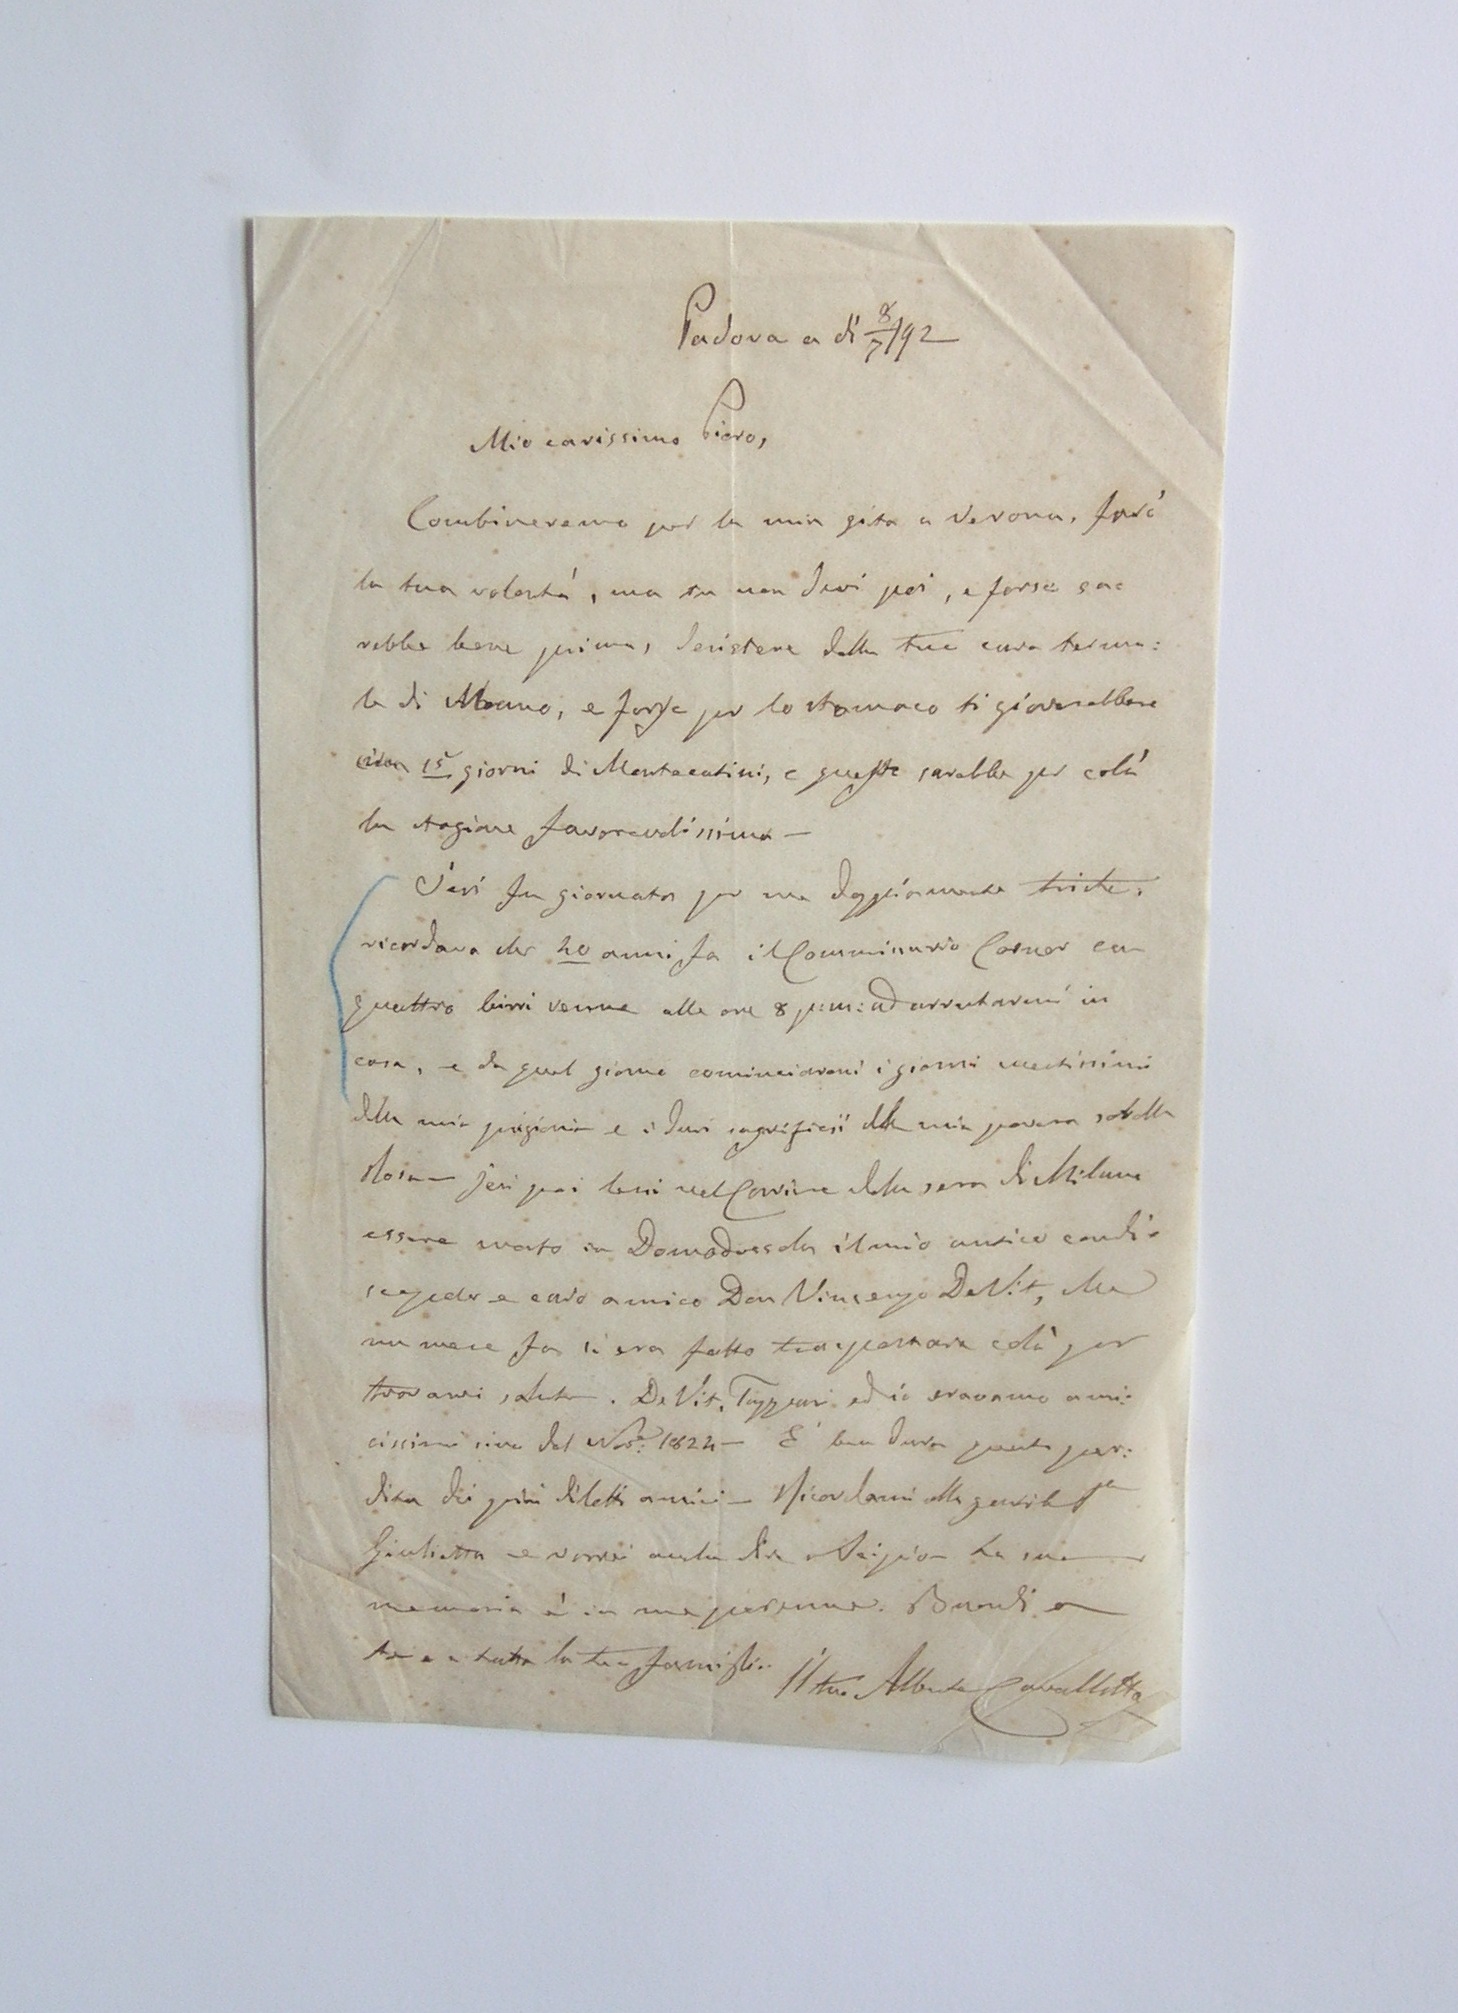 Padova a dì 8/7/92
Mio carissimo Piero,
Combineremo per la mia gita a Verona. Farò
la tua volontà, ma tu non devi poi, e forse sa=
rebbe bene prima, desistere dalla tua cura terma:
le di Abano, e forse per lo stomaco ti gioverebbero
circa 15 giorni di Montecatini, e questa sarebbe per colà
la stagione favorevolissima —
Jeri fu giornata per me doppiamente triste:
ricordava che 40 anni fa il Commissario Corner con
quattro birri venne alle ore 8 p:m: ad arrestarmi in
casa, e da quel giorno cominciaroni i giorni mestissimi
della mia prigionia e i duri sagrifizii della mia povera sorella
Rosa — Jeri poi lessi nel Corriere della sera di Milano
essere morto in Domodossola il mio antico condi=
scepolo e caro amico Don Vincenzo De Vit, che
un mese fa si era fatto trasportare colà per
trovarvi salute. De Vit, ed io eravamo ami:
cissimi sino dal Nov.e 1824 — È ben dura questa per:
dita dei più diletti amici — Ricordami alla gentile
Giulietta e vorrei anche dire a Scipio — La sua
memoria è in me perenne. Buondì a
te e a tutta la tua famiglia. Il tuo Alberto Cavalletto